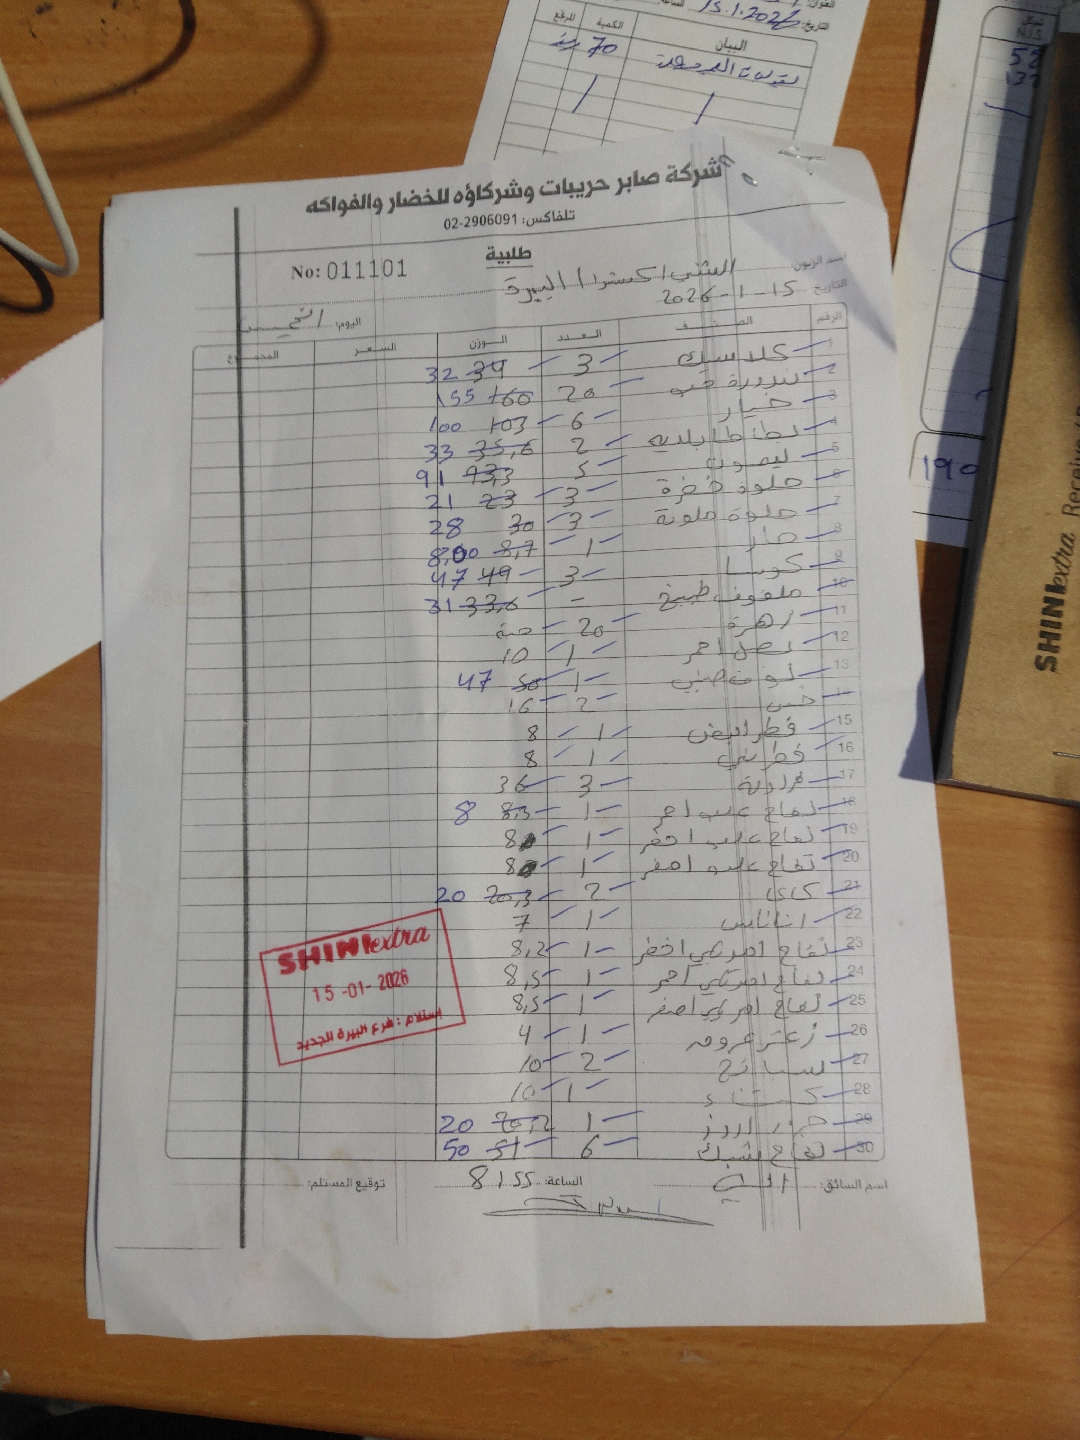 15.1.2026
التاريخ:
البيان
الكمية
70
N.I.S.
52
32
190
SHINIextra
شركة صابر حريبات وشركاؤه للخضار والفواكه
تلفاكس: 02-2906091
طلبية
No: 011101
اسم الزبون الشني اكسترا / البيرة
التاريخ 15-1-2026
اليوم: الخميس
الرقم الصنف العدد الوزن السعر المجموع
1 كلاسيك 3 34 32
2 بندورة 20 160 155
3 خيار 6 103 100
4 بطاطا بلديه 2 35,6 33
5 ليمون 5 93,3 91
6 حلوة خضرة 3 23 21
7 حلوة ملونة 3 30 28
8 حار 1 8,7 8,00
9 كوسا 3 49 47
10 ملفوف طبيخ - 33,6 31
11 زهرة 20 حبة
12 بصل احمر 1 10
13 ملفوف صيني 1 50 47
14 خس 2 16
15 فطر ابيض 1 8
16 فطر بني 1 8
17 فراولة 3 36
18 تفاح علب احمر 1 8,3 8
19 تفاح علب اخضر 1 8
20 تفاح علب اصفر 1 8
21 كاكا 2 20,3 20
22 اناناس 1 7
23 تفاح امريكي اخضر 1 8,2
24 تفاح امريكي احمر 1 8,5
25 تفاح امريكي اصفر 1 8,5
26 زعتر عروق 1 4
27 سبانخ 2 10
28 كستناء 1 10
29 جزر 1 20,2 20
30 تفاح شبك 6 51 50
SHINIextra
15-01-2026
استلام : فرع البيرة الجديد
اسم السائق: الساعة: 8:55 توقيع المستلم: